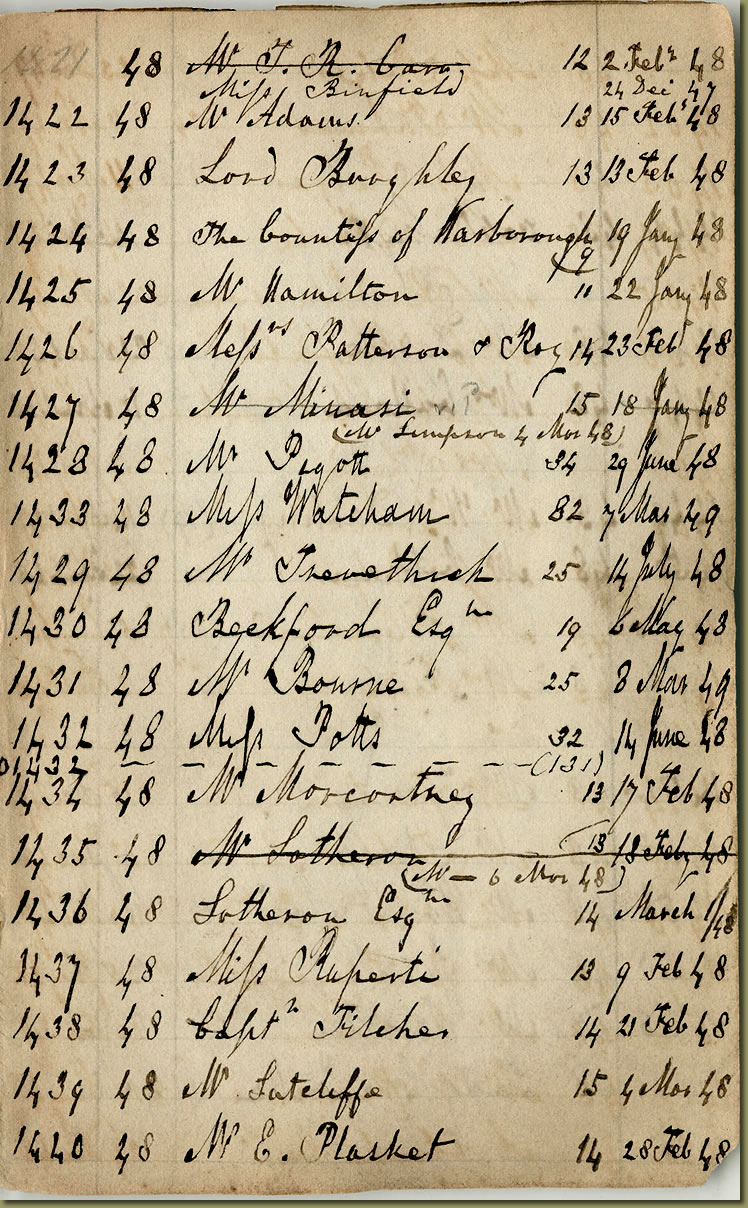 1421 48 Mr T. R. 12 2 Feby 48
Miss Binfield 24 Dec 47
1422 48 Mr Adams 13 15 Feby 48
1423 48 Lord Burghley 13 13 Feb 48
1424 48 The Countess of Harborough 19 Jany 48
(9
1425 48 Mr Hamilton 11 22 Jany 48
1426 48 Messrs Patterson & Roy 14 23 Feb 48
1427 48 Mr Minasi 15 18 Jany 48
(Mr Simpson 4 Mar 48)
1428 48 Mr Pigott 34 29 June 48
1433 48 Miss Wateham 82 7 Mar 49
1429 48 Mr Trevethick 25 14 July 48
1430 48 Beckford Esqre 19 6 May 48
1431 48 Mr Bourne 25 8 Mar 49
1432 48 Miss Potts 32 14 June 48
01432 – – – – – – – (131)
1434 48 Mr Morcortney 13 17 Feb 48
1435 48 Mr Sotheron 13 18 Feby 48
(Mr — 6 Mar 48)
1436 48 Sotheron Esqre 14 March 1/48
1437 48 Miss Ruperti 13 9 Feb 48
1438 48 Captn Filcher 14 21 Feb 48
1439 48 Mr Sutcliffe 15 4 Mar 48
1440 48 Mr E. Plasket 14 28 Feb 48